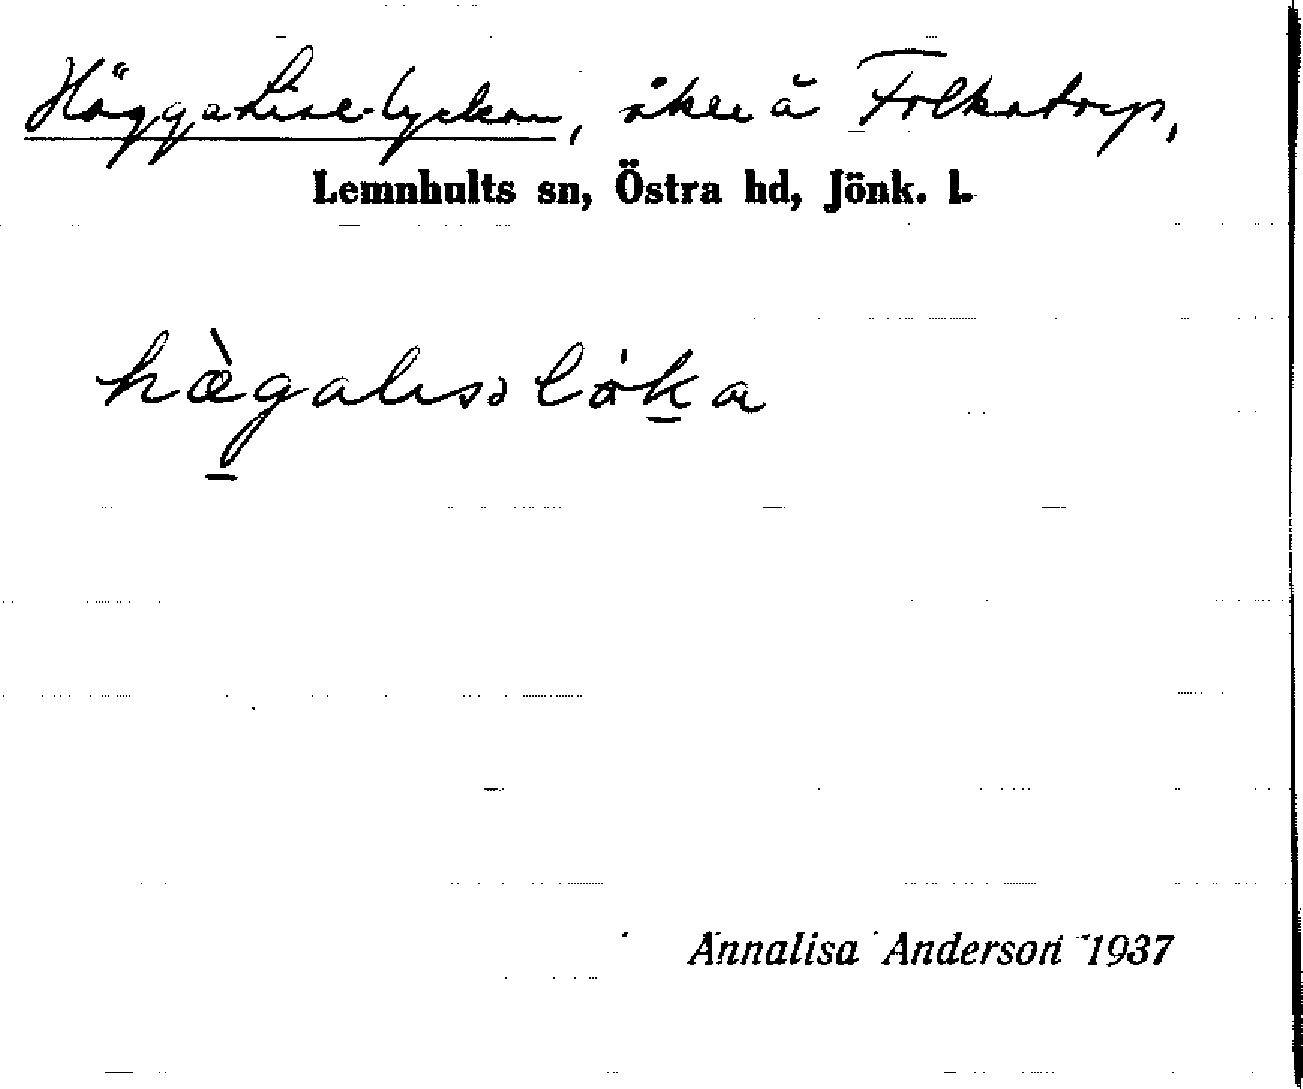 Högga-Lise-lyckan, åker å Folkstorp,
Lemnhults sn, Östra hd, Jönk. l.
Annalisa Anderson 1937